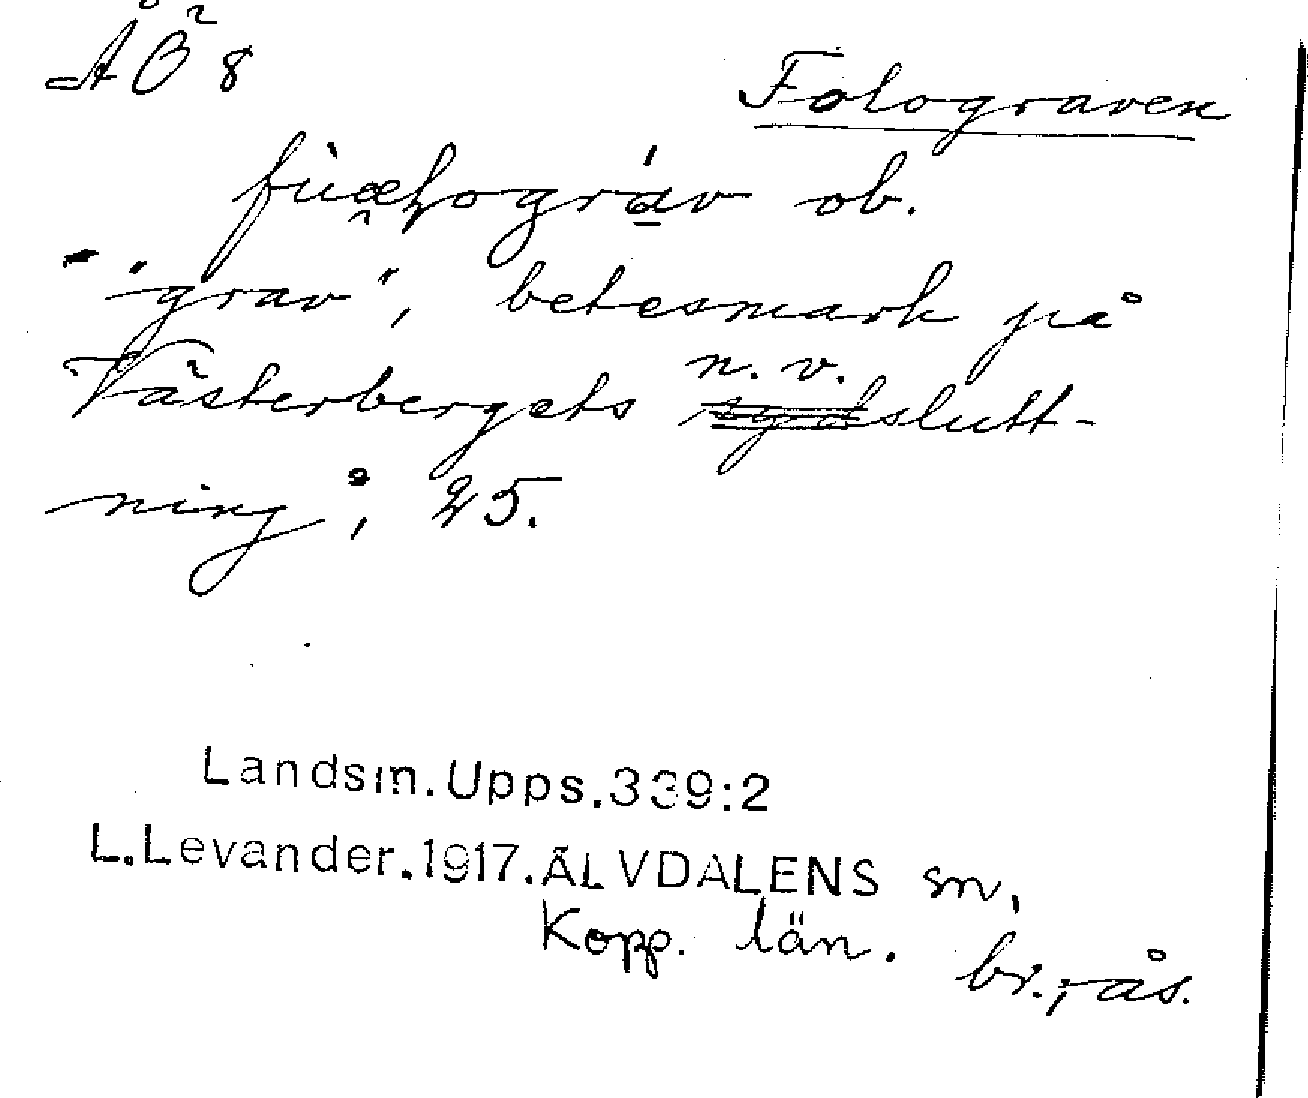 ÅÖ 8
Folograven
fùæ̯ɫogràv ob.
- "-grav", betesmark på
n. v.
Västerbergets sydslutt-
ning; 25.
Landsm.Upps.339:2
L.Levander.1917.ÄLVDALENS sn,
Kopp. län.
br., ås.